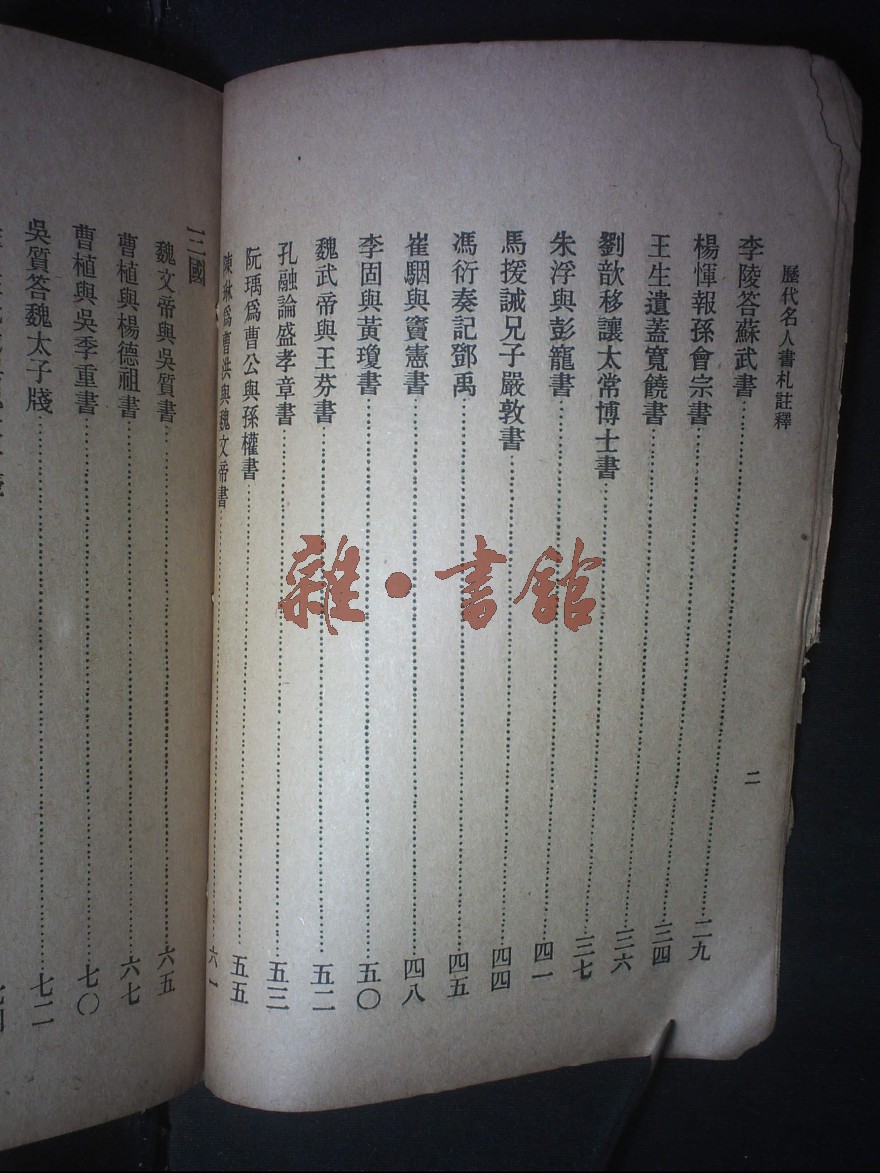 歷代名人書札註釋
二
李陵答蘇武書……二九
楊惲報孫會宗書……三四
王生遺蓋寬饒書……三六
劉歆移讓太常博士書……三七
朱浮與彭寵書……四一
馬援誡兄子嚴敦書……四四
馮衍奏記鄧禹……四五
崔駰與竇憲書……四八
李固與黃瓊書……五〇
魏武帝與王芬書……五二
孔融論盛孝章書……五三
阮瑀爲曹公與孫權書……五五
陳琳爲曹洪與魏文帝書……六一
三國
魏文帝與吳質書……六五
曹植與楊德祖書……六七
曹植與吳季重書……七〇
吳質答魏太子牋……七二
雜·書館